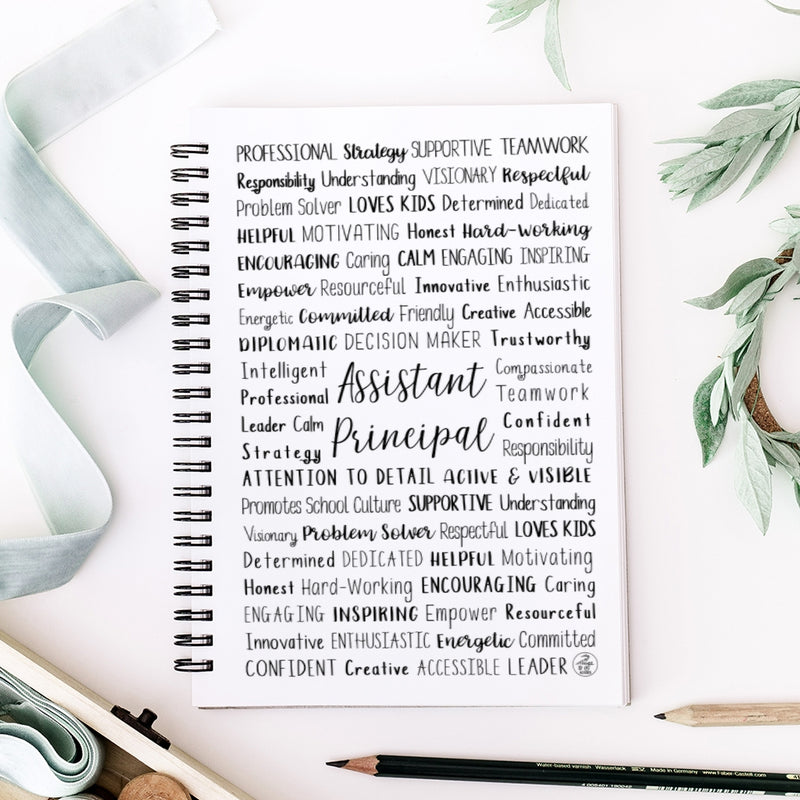 PROFESSIONAL Strategy SUPPORTIVE TEAMWORK
Responsibility Understanding VISIONARY Respectful
Problem Solver LOVES KIDS Determined Dedicated
HELPFUL MOTIVATING Honest Hard-Working
ENCOURAGING Caring CALM ENGAGING INSPIRING
Empower Resourceful Innovative Enthusiastic
Energetic Committed Friendly Creative Accessible
DIPLOMATIC DECISION MAKER Trustworthy
Intelligent
Professional
Assistant
Compassionate
Teamwork
Leader Calm
Strategy
Principal
Confident
Responsibility
ATTENTION TO DETAIL ACTIVE & VISIBLE
Promotes School Culture SUPPORTIVE Understanding
Visionary Problem Solver Respectful LOVES KIDS
Determined DEDICATED HELPFUL Motivating
Honest Hard-Working ENCOURAGING Caring
ENGAGING INSPIRING Empower Resourceful
Innovative ENTHUSIASTIC Energetic Committed
CONFIDENT Creative ACCESSIBLE LEADER
Water-based varnish Wasserlack Made in Germany www.Faber-Castell.com